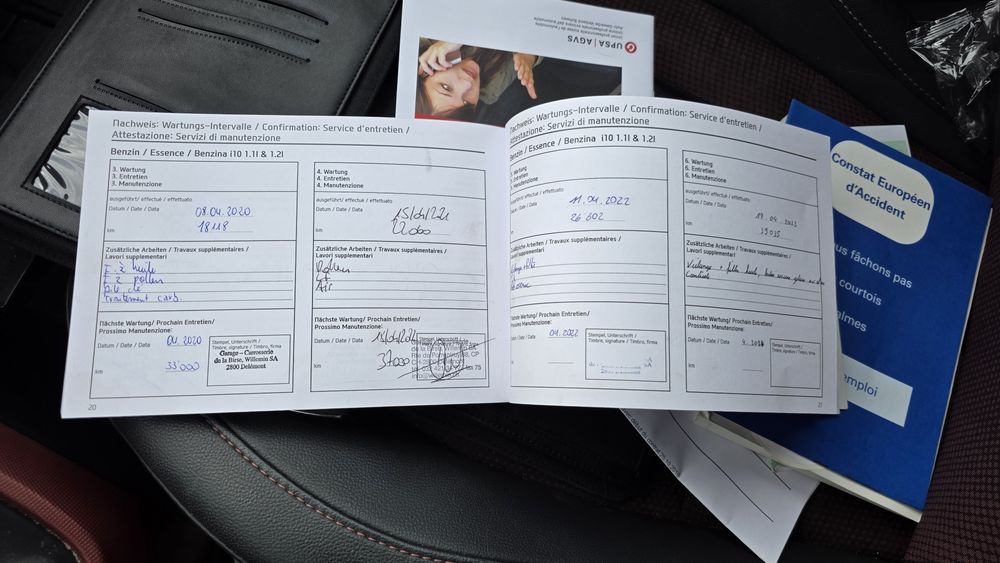 UPSA | AGVS
Union professionnelle suisse de l'automobile
Unione professionale svizzera dell'automobile
Auto Gewerbe Verband Schweiz
Nachweis: Wartungs-Intervalle / Confirmation: Service d'entretien /
Attestazione: Servizi di manutenzione
Benzin / Essence / Benzina (i10 1.1l & 1.2l)
3. Wartung
3. Entretien
3. Manutenzione
ausgeführt/ effectué / effettuato
Datum / Date / Data 08.04.2020
km 18118
Zusätzliche Arbeiten / Travaux supplémentaires /
Lavori supplementari
F. à huile
F. à pollen
Pile clé
Traitement carb.
Nächste Wartung/ Prochain Entretien/
Prossimo Manutenzione:
Datum / Date / Data 04.2020
km 33'000
Stempel, Unterschrift /
Timbre, signature / Timbro, firma
Garage - Carrosserie
de la Birse, Willemin SA
2800 Delémont
20
4. Wartung
4. Entretien
4. Manutenzione
ausgeführt/ effectué / effettuato
Datum / Date / Data 15/04/2021
km 22000
Zusätzliche Arbeiten / Travaux supplémentaires /
Lavori supplementari
Pollen
Air
Nächste Wartung/ Prochain Entretien/
Prossimo Manutenzione:
Datum / Date / Data
km 37000
Stempel, Unterschrift /
Nachweis: Wartungs-Intervalle / Confirmation: Service d'entretien /
Attestazione: Servizi di manutenzione
Benzin / Essence / Benzina (i10 1.1l & 1.2l)
Wartung
Entretien
Manutenzione
ausgeführt/ effectué / effettuato
Datum / Date / Data 11.04.2022
km 26 602
Zusätzliche Arbeiten / Travaux supplémentaires /
Lavori supplementari
Nächste Wartung/ Prochain Entretien/
Prossimo Manutenzione:
Datum / Date / Data
km
Stempel, Unterschrift /
Timbre, signature / Timbro, firma
6. Wartung
6. Entretien
6. Manutenzione
ausgeführt/ effectué / effettuato
Datum / Date / Data 17.04.2023
km 39035
Zusätzliche Arbeiten / Travaux supplémentaires /
Lavori supplementari
Vidange + filtre huile,
Nächste Wartung/ Prochain Entretien/
Prossimo Manutenzione:
Datum / Date / Data 4.2024
km
Stempel, Unterschrift /
Timbre, signature / Timbro, firma
21
Constat Européen
d'Accident
fâchons pas
courtois
almes
emploi